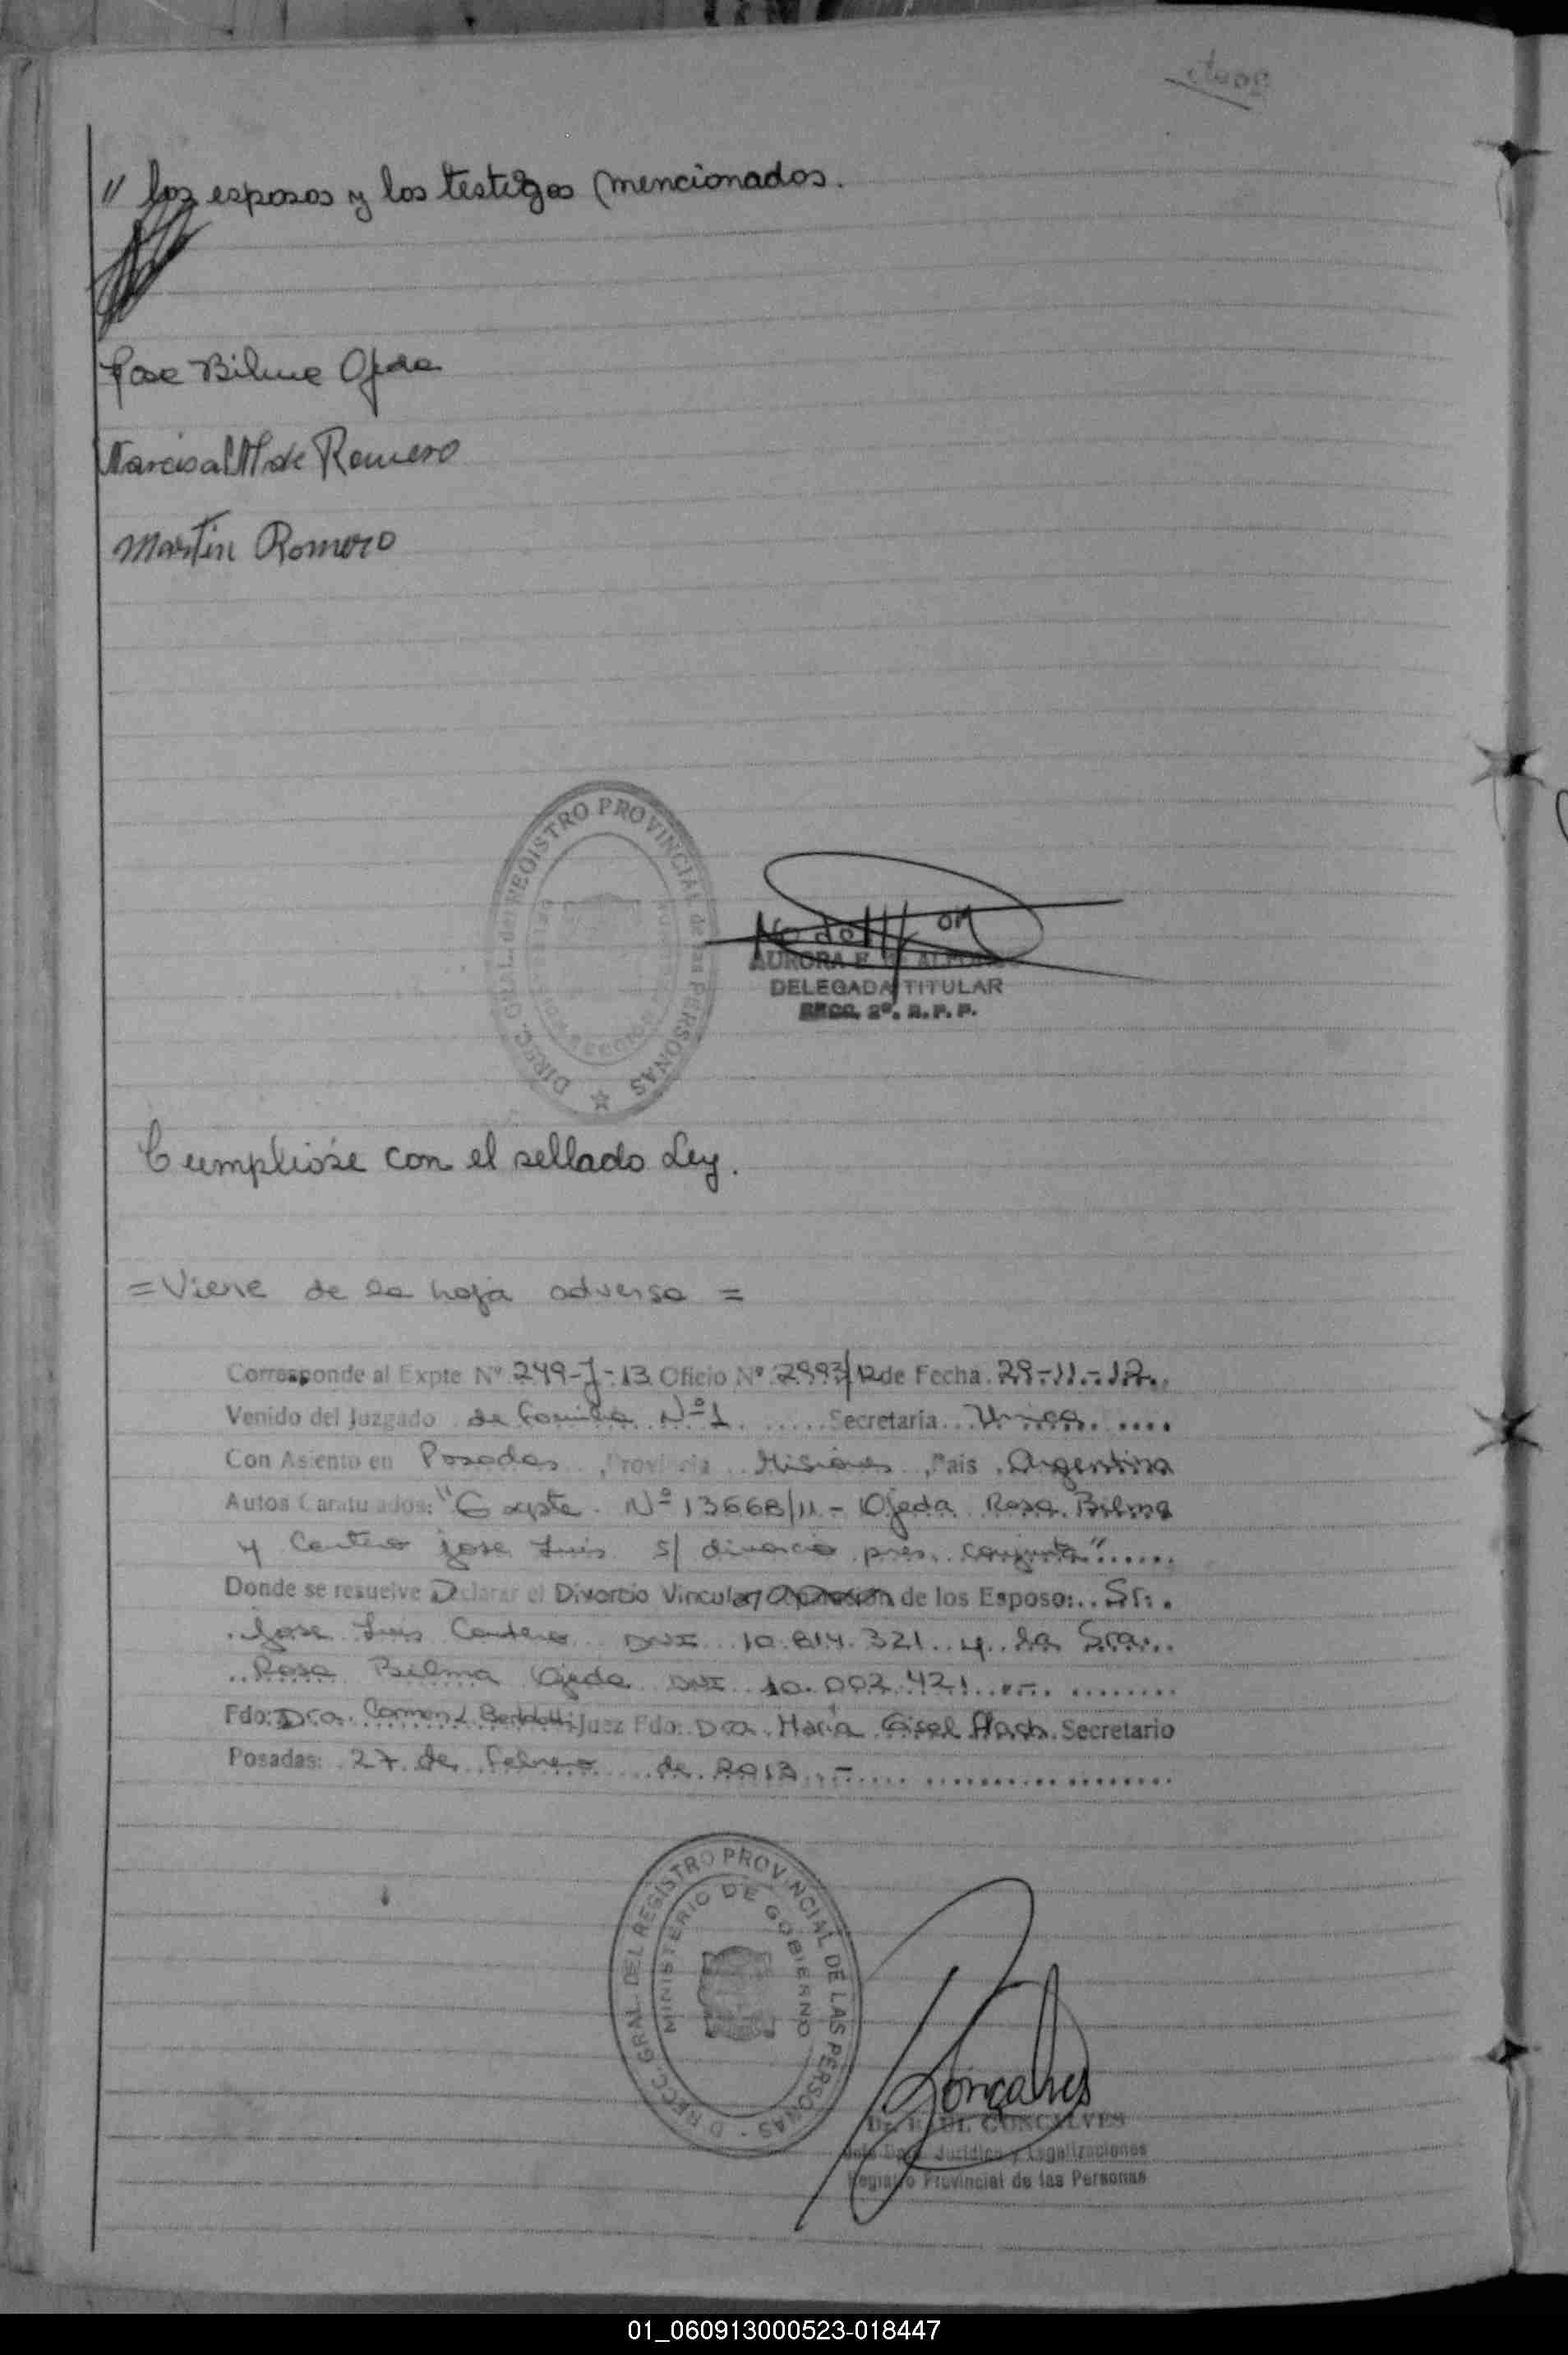 " los esposos y los testigos mencionados.
Rosa Bilma Ojeda
Narcisa M de Romero
Martin Romero
DIREC. GRAL. del REGISTRO PROVINCIAL de las PERSONAS
AURORA E.
DELEGADA TITULAR
SECC. 2º. R. P. P.
Cumplióse con el sellado Ley.
= Viene de la hoja adversa =
Corresponde al Expte Nº 249-J-13 Oficio Nº 2993/12 de Fecha 29-11-12
Venido del Juzgado de Familia Nº 1 Secretaría Unica
Con Asiento en Posadas, Provincia Misiones, País Argentina
Autos Caratulados: "Expte. Nº 13668/11 - Ojeda Rosa Bilma
y Centero Jose Luis s/ divorcio pres. conjunta"
Donde se resuelve Declarar el Divorcio Vincular/ de los Esposo: Sr.
Jose Luis Centero DNI 10.814.321 y la Sra.
Rosa Bilma Ojeda DNI 10.002.421 .-
Fdo: Dra. Carmen Juez Fdo: Dra. María Gisel Secretario
Posadas: 27 de febrero de 2013.-
DIRECC. GRAL. DEL REGISTRO PROVINCIAL DE LAS PERSONAS
MINISTERIO DE GOBIERNO
Goncalves
Dr. RAUL GONCALVES
Jefe Dpto. Jurídico y Legalizaciones
Registro Provincial de las Personas
01_060913000523-018447